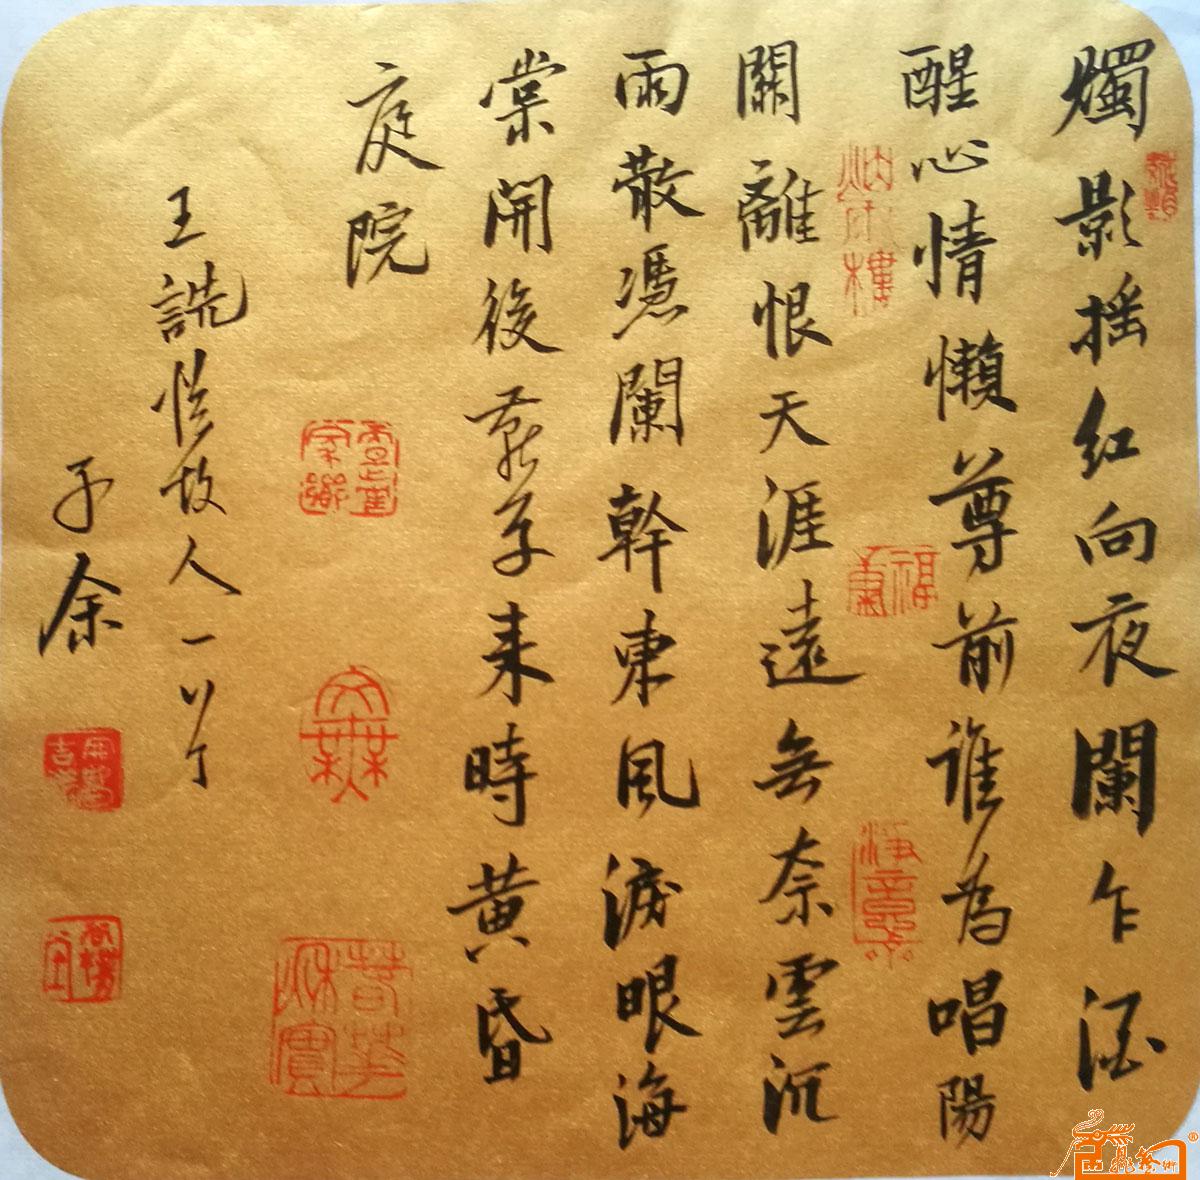 燭影摇红向夜闌乍酒
醒心情懒尊前誰為唱陽
關離恨天涯遠無奈雲沉
雨散憑闌幹東風淚眼海
棠開後燕子来時黄昏
庭院
王詵憶故人一首
子余